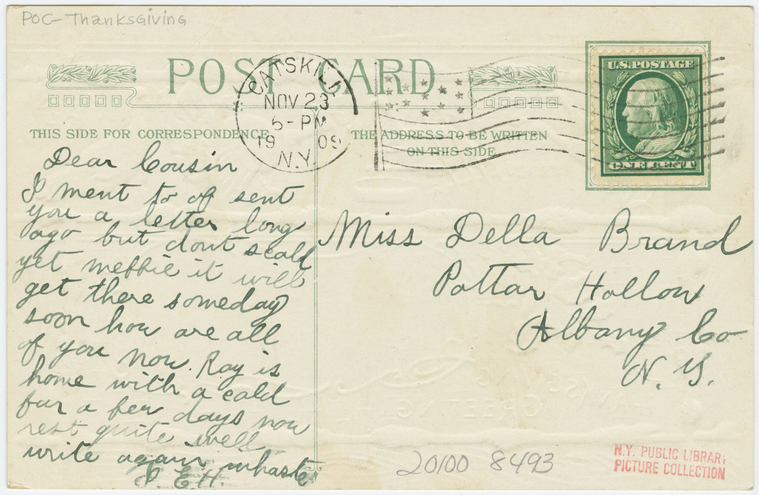 POC-Thanksgiving
POST CARD
CATSKILL
NOV 23
5-PM
1909
N.Y.
U.S. POSTAGE
ONE CENT
THIS SIDE FOR CORRESPONDENCE
THE ADDRESS TO BE WRITTEN
ON THIS SIDE
Dear Cousin
I ment to of sent
you a letter long
ago but dont scald
yet meffie it will
get there someday
soon how are all
of you now. Ray is
home with a cald
for a few days now
rest quite well
write again
Miss Della Brand
Pottar Hollow
Albany Co
N. Y.
20100 8493
N.Y. PUBLIC LIBRARY
PICTURE COLLECTION